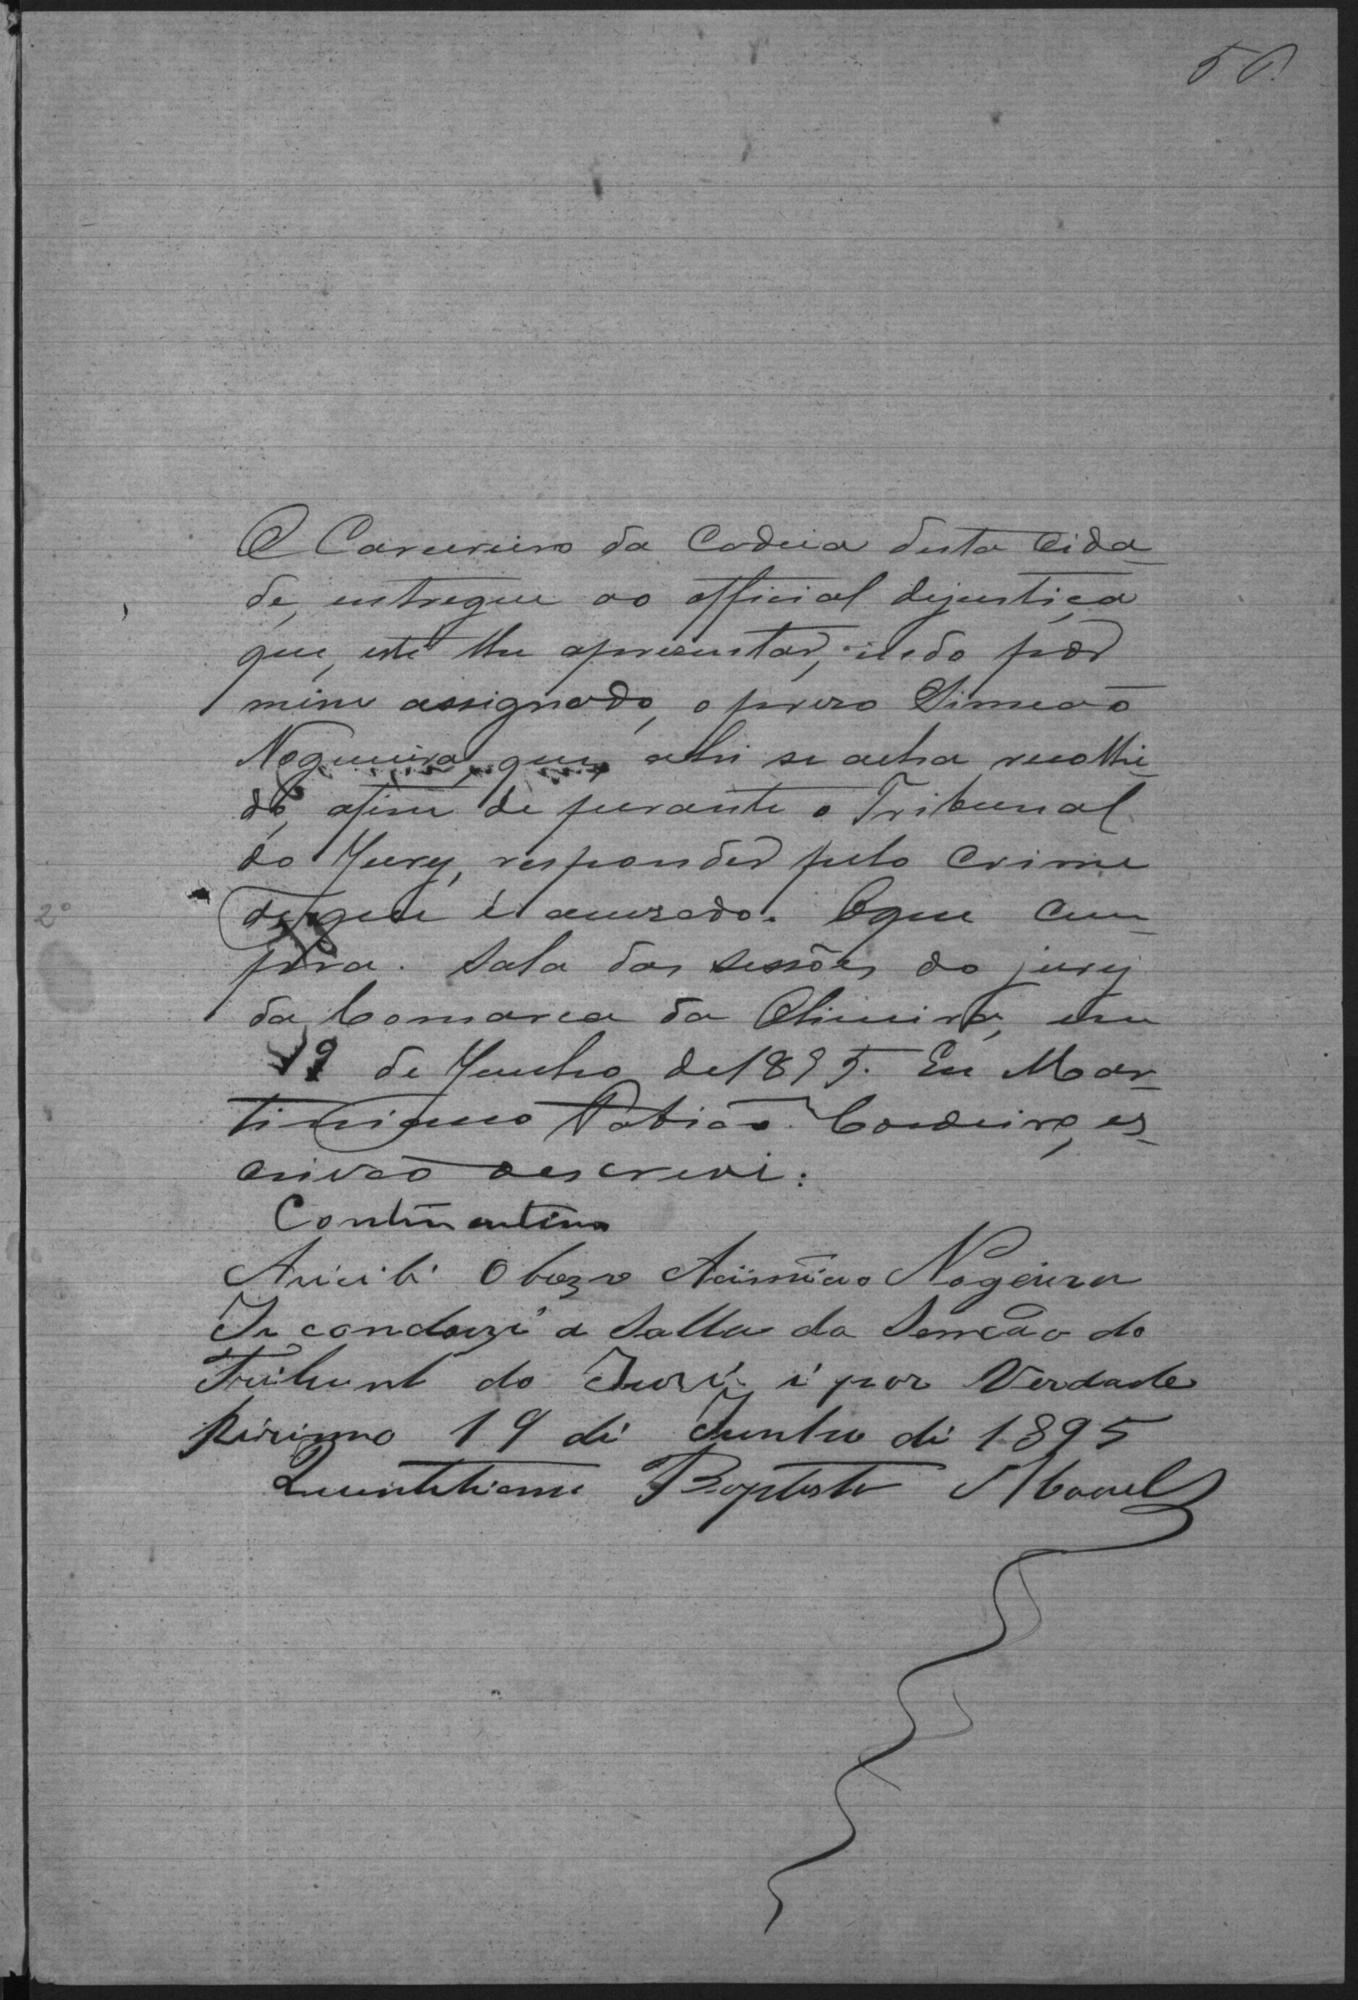 50.
O Carcereiro da Cadeia desta Cida-
de, entregue ao official dejustiça
que, este lhe apresentar, indo por
mim assignado, o prezo Simeaõ
Nogueira, que, ahi se acha recolhi-
do, afim de perante o Tribunal
do Jury, responder pelo crime
de que é accuzado. Oque cum-
pra. Sala das sessões do jury
da Comarca da Oliveira, em
19 de Junho de 1895. Eu Mar-
tiniano Fabiaõ Cordeiro, es-
crivaõ oescrevi:
2º
Recibi O Prezo Nogeira
I conduzi a Salla da Senção do
Tribunal do Juri i por Verdade
firimo 19 di Junho di 1895
Quintiliano Baptista